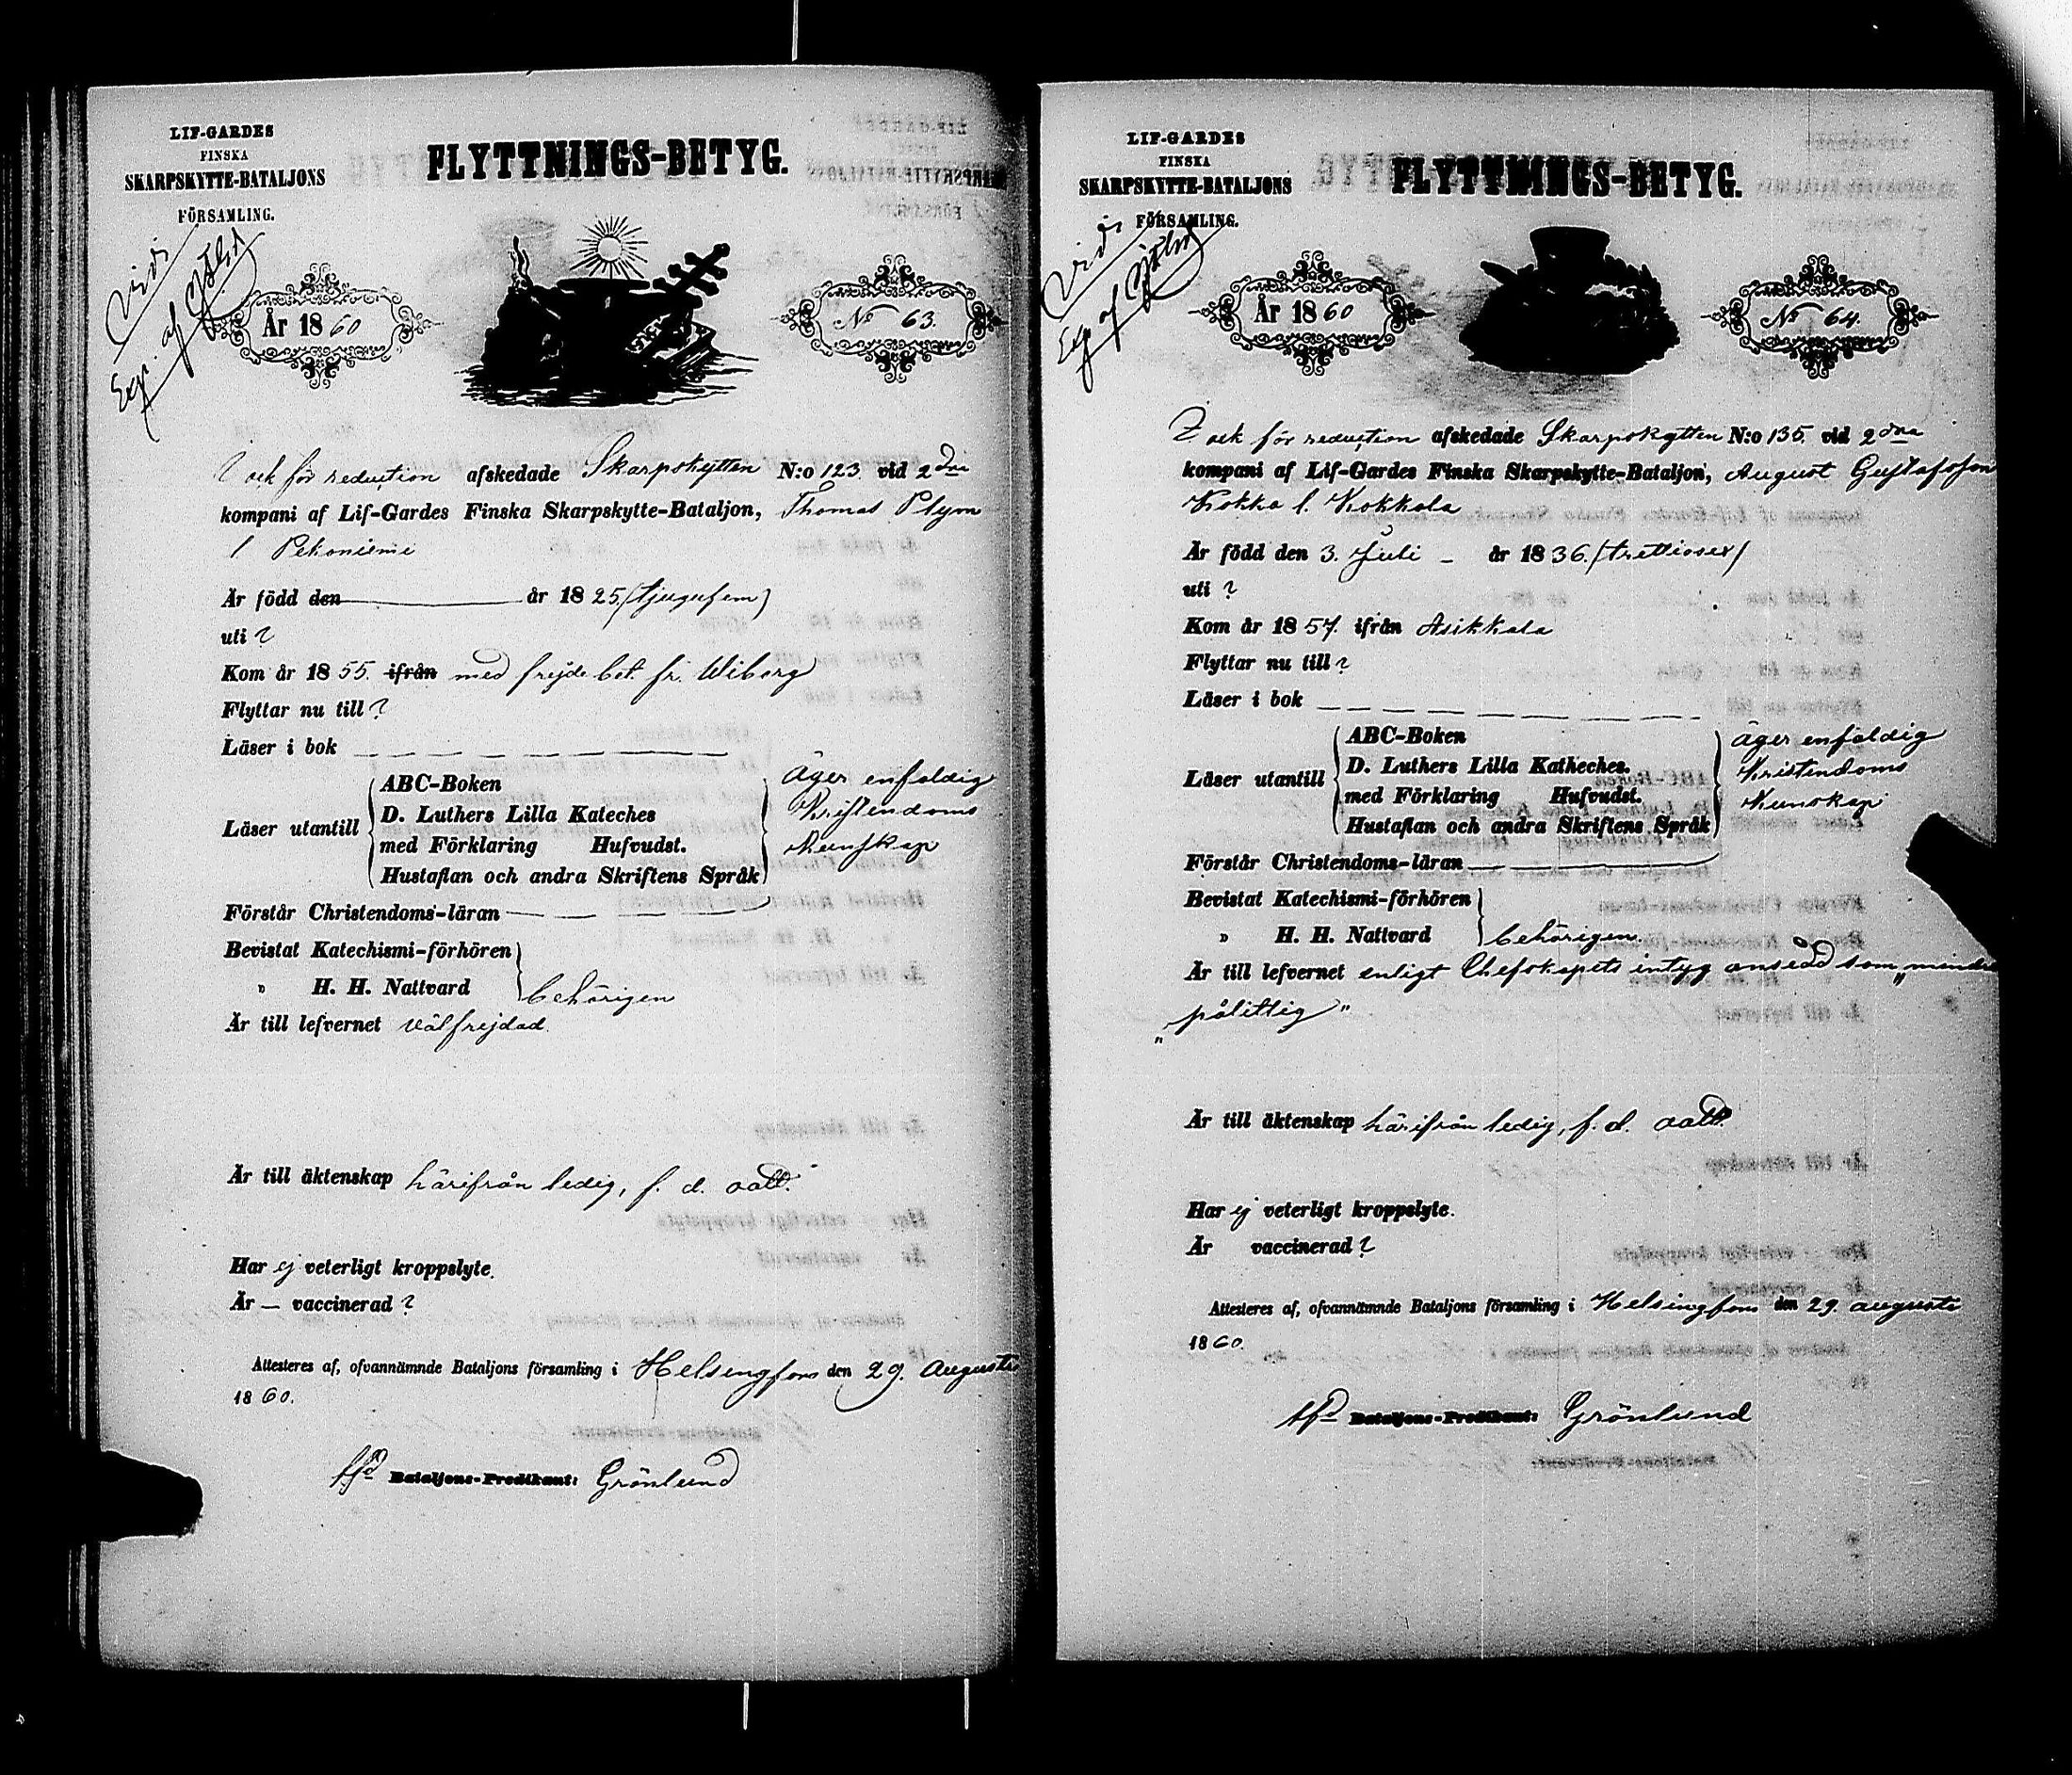 LIF-GARDES
FINSKA
SKARPSKYTTE-BATALJONS
FÖRSAMLING.
FLYTTNINGS-BETYG.
År 1860
No 63.
Vidi
Exp. af
och för reduction afskedade Skarpskytten N:o 123 vid 2dra
kompani af Lif-Gardes Finska Skarpskytte-Bataljon, Thomas Plym
l Pekoniemi
Är född den år 1825. (tjugufem)
uti ?
Kom år 1855. ifrån med frejdebet. fr. Wiborg
Flyttar nu till ?
Läser i bok — — — — — — —
Läser utantill
ABC-Boken
D. Luthers Lilla Kateches
med Förklaring Hufvudst.
Hustaflan och andra Skriftens Språk
äger enfaldig
Kristendoms
Kunskap
Förstår Christendoms-läran — — — —
Bevistat Katechismi-förhören
" H. H. Nattvard
behörigen
Är till lefvernet välfrejdad.
Är till äktenskap härifrån ledig, f. d. att.
Har ej veterligt kroppslyte.
Är — vaccinerad ?
Attesteres af, ofvannämnde Bataljons församling i Helsingfors den 29. Augusti
1860.
tfd Bataljons-Predikant: Grönlund
LIF-GARDES
FINSKA
SKARPSKYTTE-BATALJONS
FÖRSAMLING.
FLYTTNINGS-BETYG.
År 1860
No 64.
Vidi
Exp af
och för reduction afskedade Skarpskytten N:o 135. vid 2dra
kompani af Lif-Gardes Finska Skarpskytte-Bataljon, August Gustafsson
Kokko l. Kokkola
Är född den 3. Juli - år 1836. (trettiosex)
uti ?
Kom år 1857. ifrån Asikkala
Flyttar nu till ?
Läser i bok — — — — — — — —
Läser utantill
ABC-Boken
D. Luthers Lilla Katheches.
med Förklaring Hufvudst.
Hustaflan och andra Skriftens Språk
äger enfaldig
Kristendoms
Kunskap
Förstår Christendoms-läran
Bevistat Katechismi-förhören
" H. H. Nattvard
behörigen.
Är till lefvernet enligt Chefskapets intyg ansedd som „mindre
„pålittlig"
Är till äktenskap härifrån ledig, f. d. att.
Har ej veterligt kroppslyte.
Är vaccinerad ?
Attesteres af, ofvannämnde Bataljons församling i Helsingfors den 29. augusti
1860.
tfd Bataljons-Predikant: Grönlund